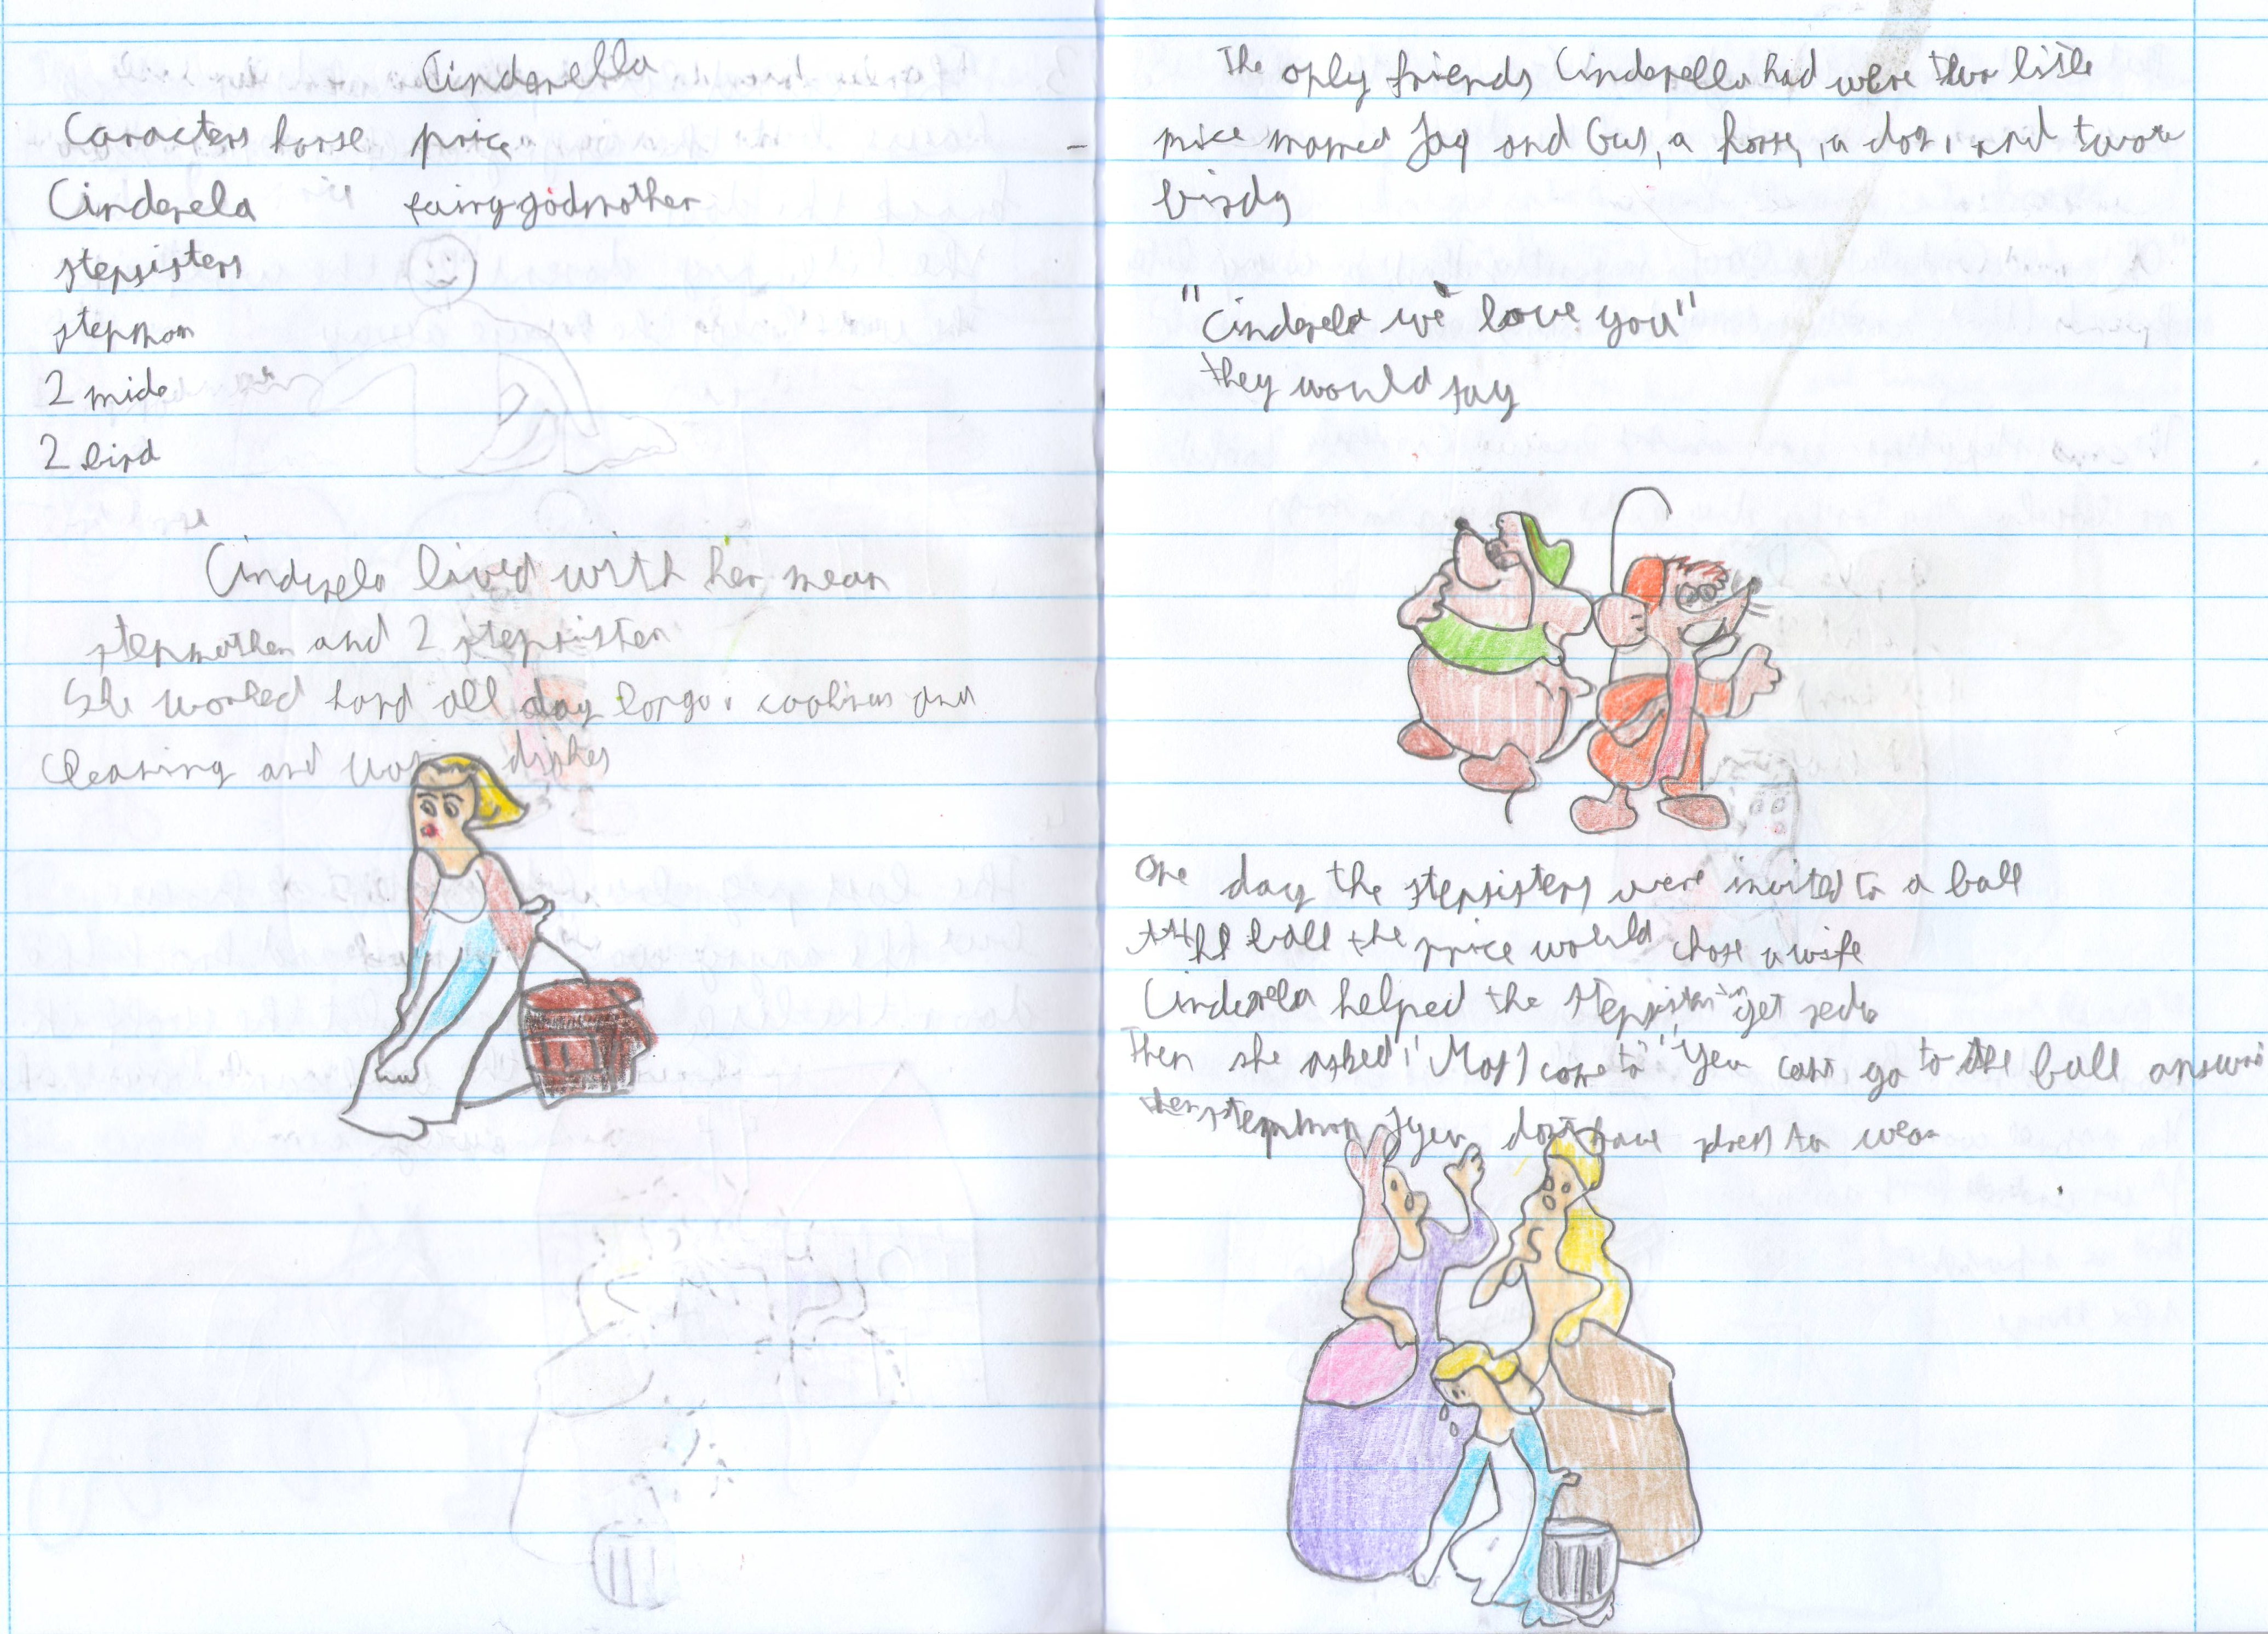 Cinderella
Caracters horse price
Cinderela fairygodmother
stepsisters
stepmom
2 mide
2 bird
Cinderela lived with her mean
stepmother and 2 stepsister
She worked hard all day long cooking and
cleaning and dishes
The only friends Cinderella had were two little
mice named Jaq and Gus, a horse, a dog, and two
birds
"Cinderela we love you"
they would say
One day the stepsisters were invited to a ball
At the ball the price would chose a wife
Cinderela helped the stepsisters get
Then she asked "May I come to" "You cant go to the ball answer
the stepmom you dont have dress to wear